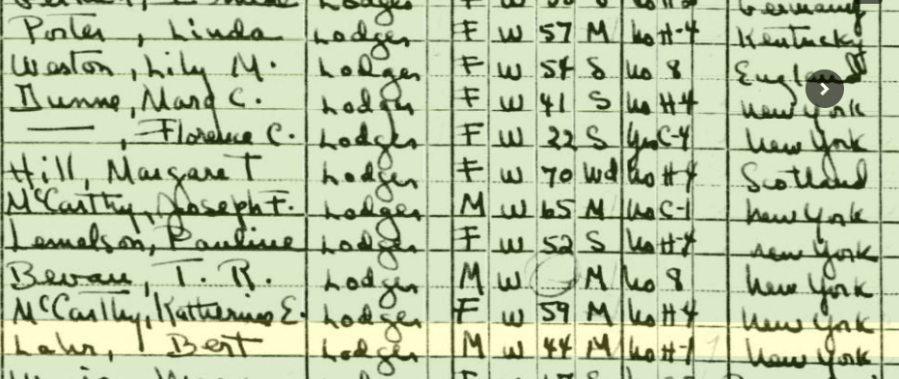 Lodger F W S Germany
Porter, Linda Lodger F W 57 M No H-4 Kentucky
Weston, Lily M. Lodger F W 54 S No 8 England
Dunne, Mary C. Lodger F W 41 S No H4 New York
——, Florence C. Lodger F W 22 S Yes C-4 New York
Hill, Margaret Lodger F W 70 Wd No H4 Scotland
McCarthy, Joseph F. Lodger M W 65 M No C-1 New York
Lemelson, Pauline Lodger F W 52 S No H-4 New York
Bevan, T. R. Lodger M W M No 8 New York
McCarthy, Katherine E. Lodger F W 59 M No H4 New York
Lahr, Bert Lodger M W 44 M No H-1 New York